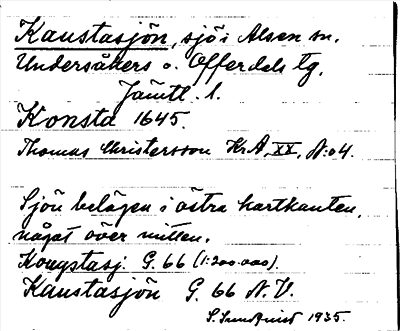 Kaustasjön, sjö i Alsen sn.
Undersåkers o. Offerdals tg.
Jämtl. l.
Konsta 1645.
Thomas Christersson Kr.A. XX, N:o 4.
Sjön belägen i östra kartkanten,
något över mitten.
Kougstasj. G. 66 (1:200.000).
Kaustasjön G. 66 N.V.
S. Sundqvist 1935.